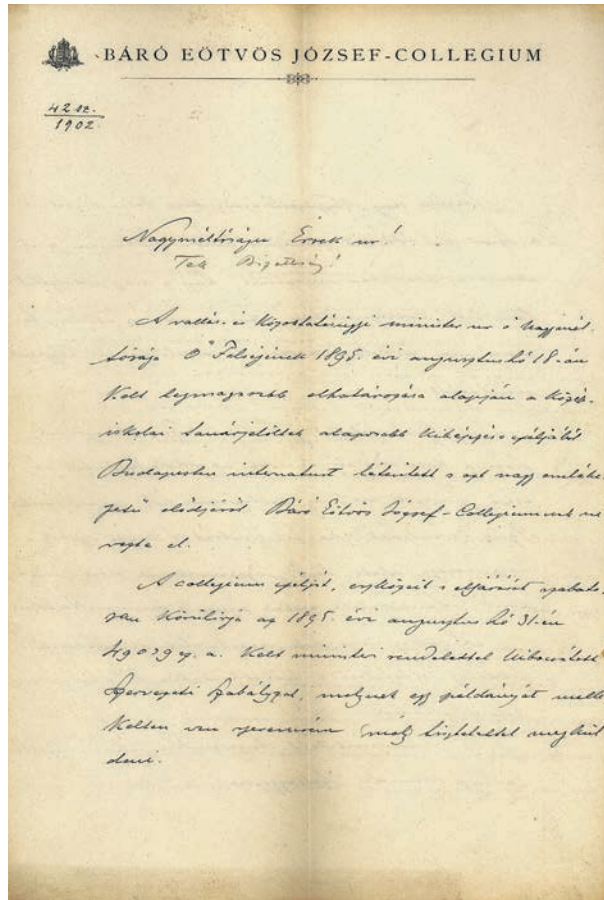 BÁRÓ EÖTVÖS JÓZSEF-COLLEGIUM
42 sz.
1902.
Nagyméltóságu Érsek ur!
Tek Bizottság!
A vallás- és Közoktatásügyi minister ur ő Nagymél-
tósága Ő Felségének 1895. évi augusztus hó 18-án
Kelt legmagasabb elhatározása alapján a Közép-
iskolai tanárjelöltek alaposabb kiképzése czéljából
Budapesten internatust létesített s azt nagy emléke-
zetű elődjéről Báró Eötvös József-Collegiumnak ne-
vezte el.
A collegium czélját, eszközeit s eljárását szabato-
san Körülirja az 1895. évi augusztus hó 31-én
49039 sz. a. Kelt ministeri rendelettel kibocsátott
Szervezeti Szabályzat, melynek egy példányát mellé-
kelten van szerencsém mély tisztelettel megkül-
deni.